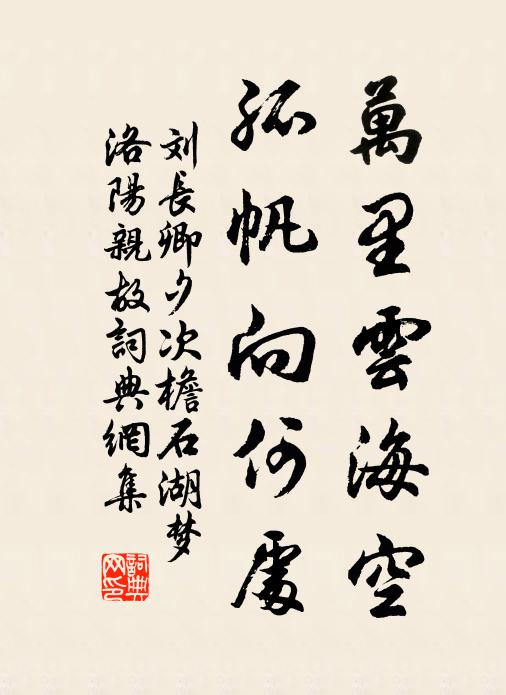 萬里雲海空
孤帆向何處
刘長卿夕次檐石湖梦
洛陽親故詞典網集
詞典
网印